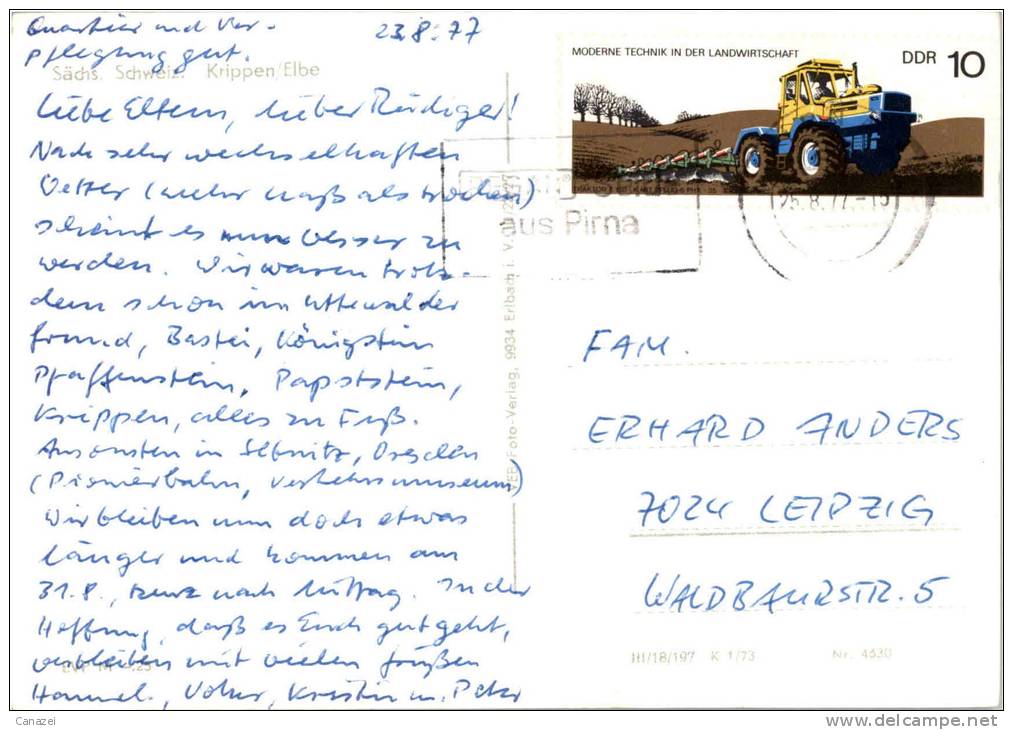 Quartier und Ver-
pflegung gut.
23.8.77
Sächs. Schweiz. Krippen/Elbe
Liebe Eltern, lieber Rüdiger!
Nach sehr wechselhaften
Wetter (mehr naß als trocken)
scheint es nun besser zu
werden. Wir waren trotz-
dem schon im Uttewalder
Grund, Bastei, Königstein
Pfaffenstein, Papststein,
Krippen, alles zu Fuß.
Ansonsten in Sebnitz, Dresden
(Pionierbahn, Verkehrsmuseum)
Wir bleiben nun doch etwas
länger und kommen am
31.8., kurz nach Mittag. In der
Hoffnung, daß es Euch gut geht,
verbleiben mit vielen Grüßen
Hannel., Volker, Kerstin u. Peter
VEB Foto-Verlag, 9934 Erlbach i. V.
MODERNE TECHNIK IN DER LANDWIRTSCHAFT
DDR 10
aus Pirna
25.8.77
FAM.
ERHARD ANDERS
7024 LEIPZIG
WALDBAURSTR. 5
III/18/197 K 1/73 Nr. 4630
Canazei
www.delcampe.net